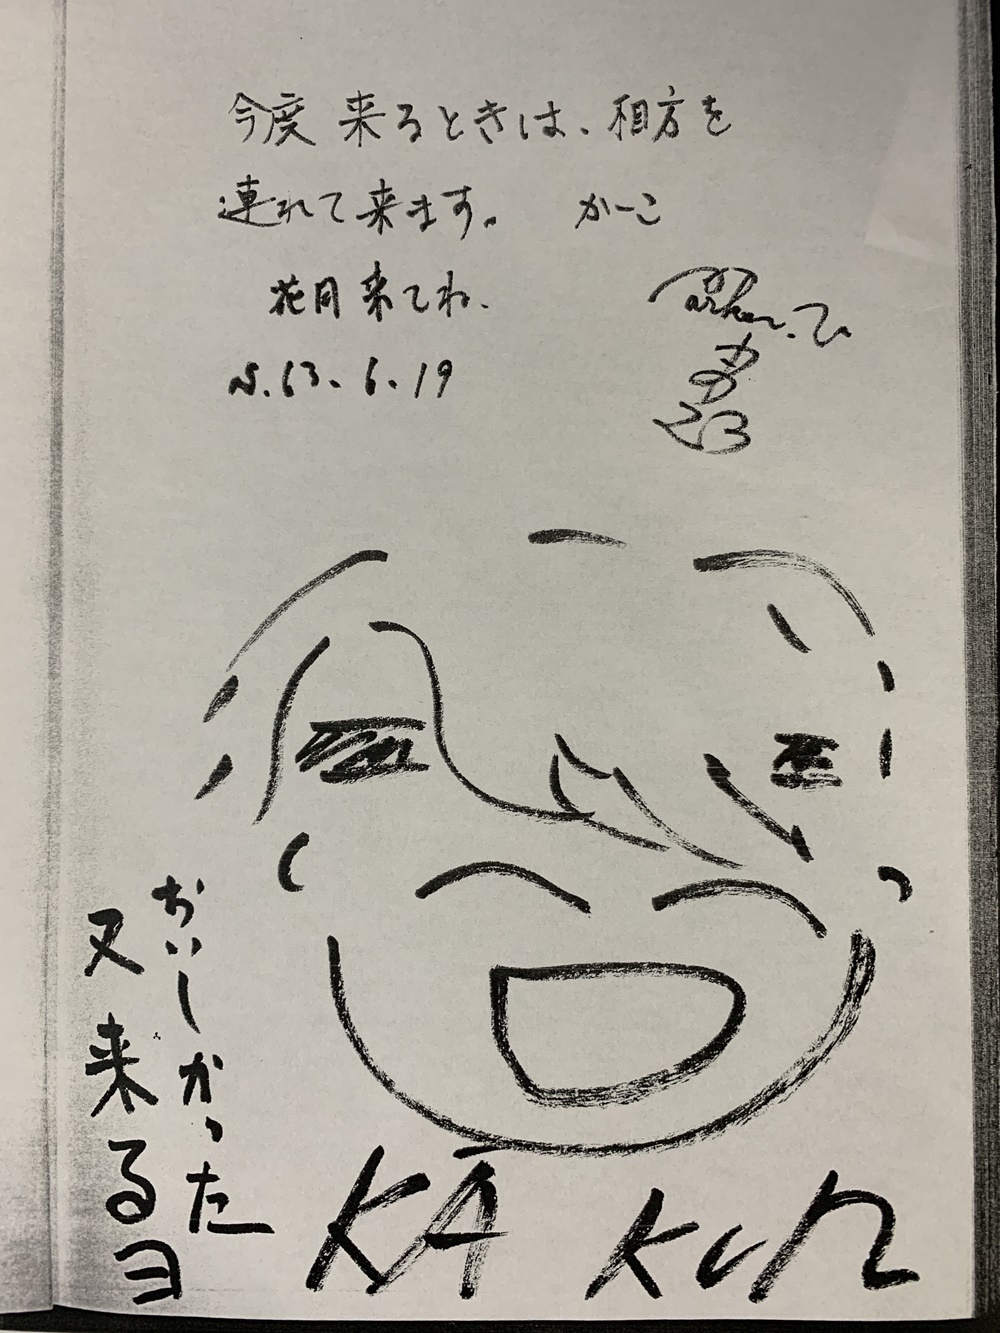 今度来るときは、相方を
連れて来ます。 かーこ
花月来てね、
S.63.6.19
おいしかった
又来るヨ
KA KUN